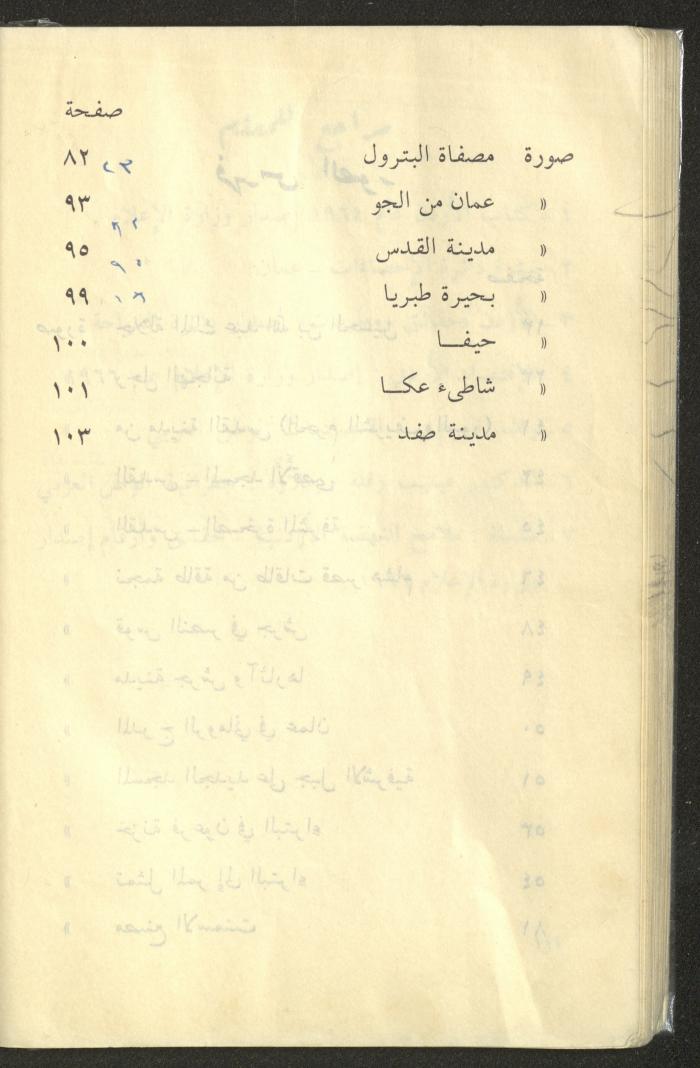 صفحة
صورة مصفاة البترول ٨٢
« عمان من الجو ٩٣
« مدينة القدس ٩٥
« بحيرة طبريا ٩٩
« حيفا ١٠٠
« شاطىء عكا ١٠١
« مدينة صفد ١٠٣